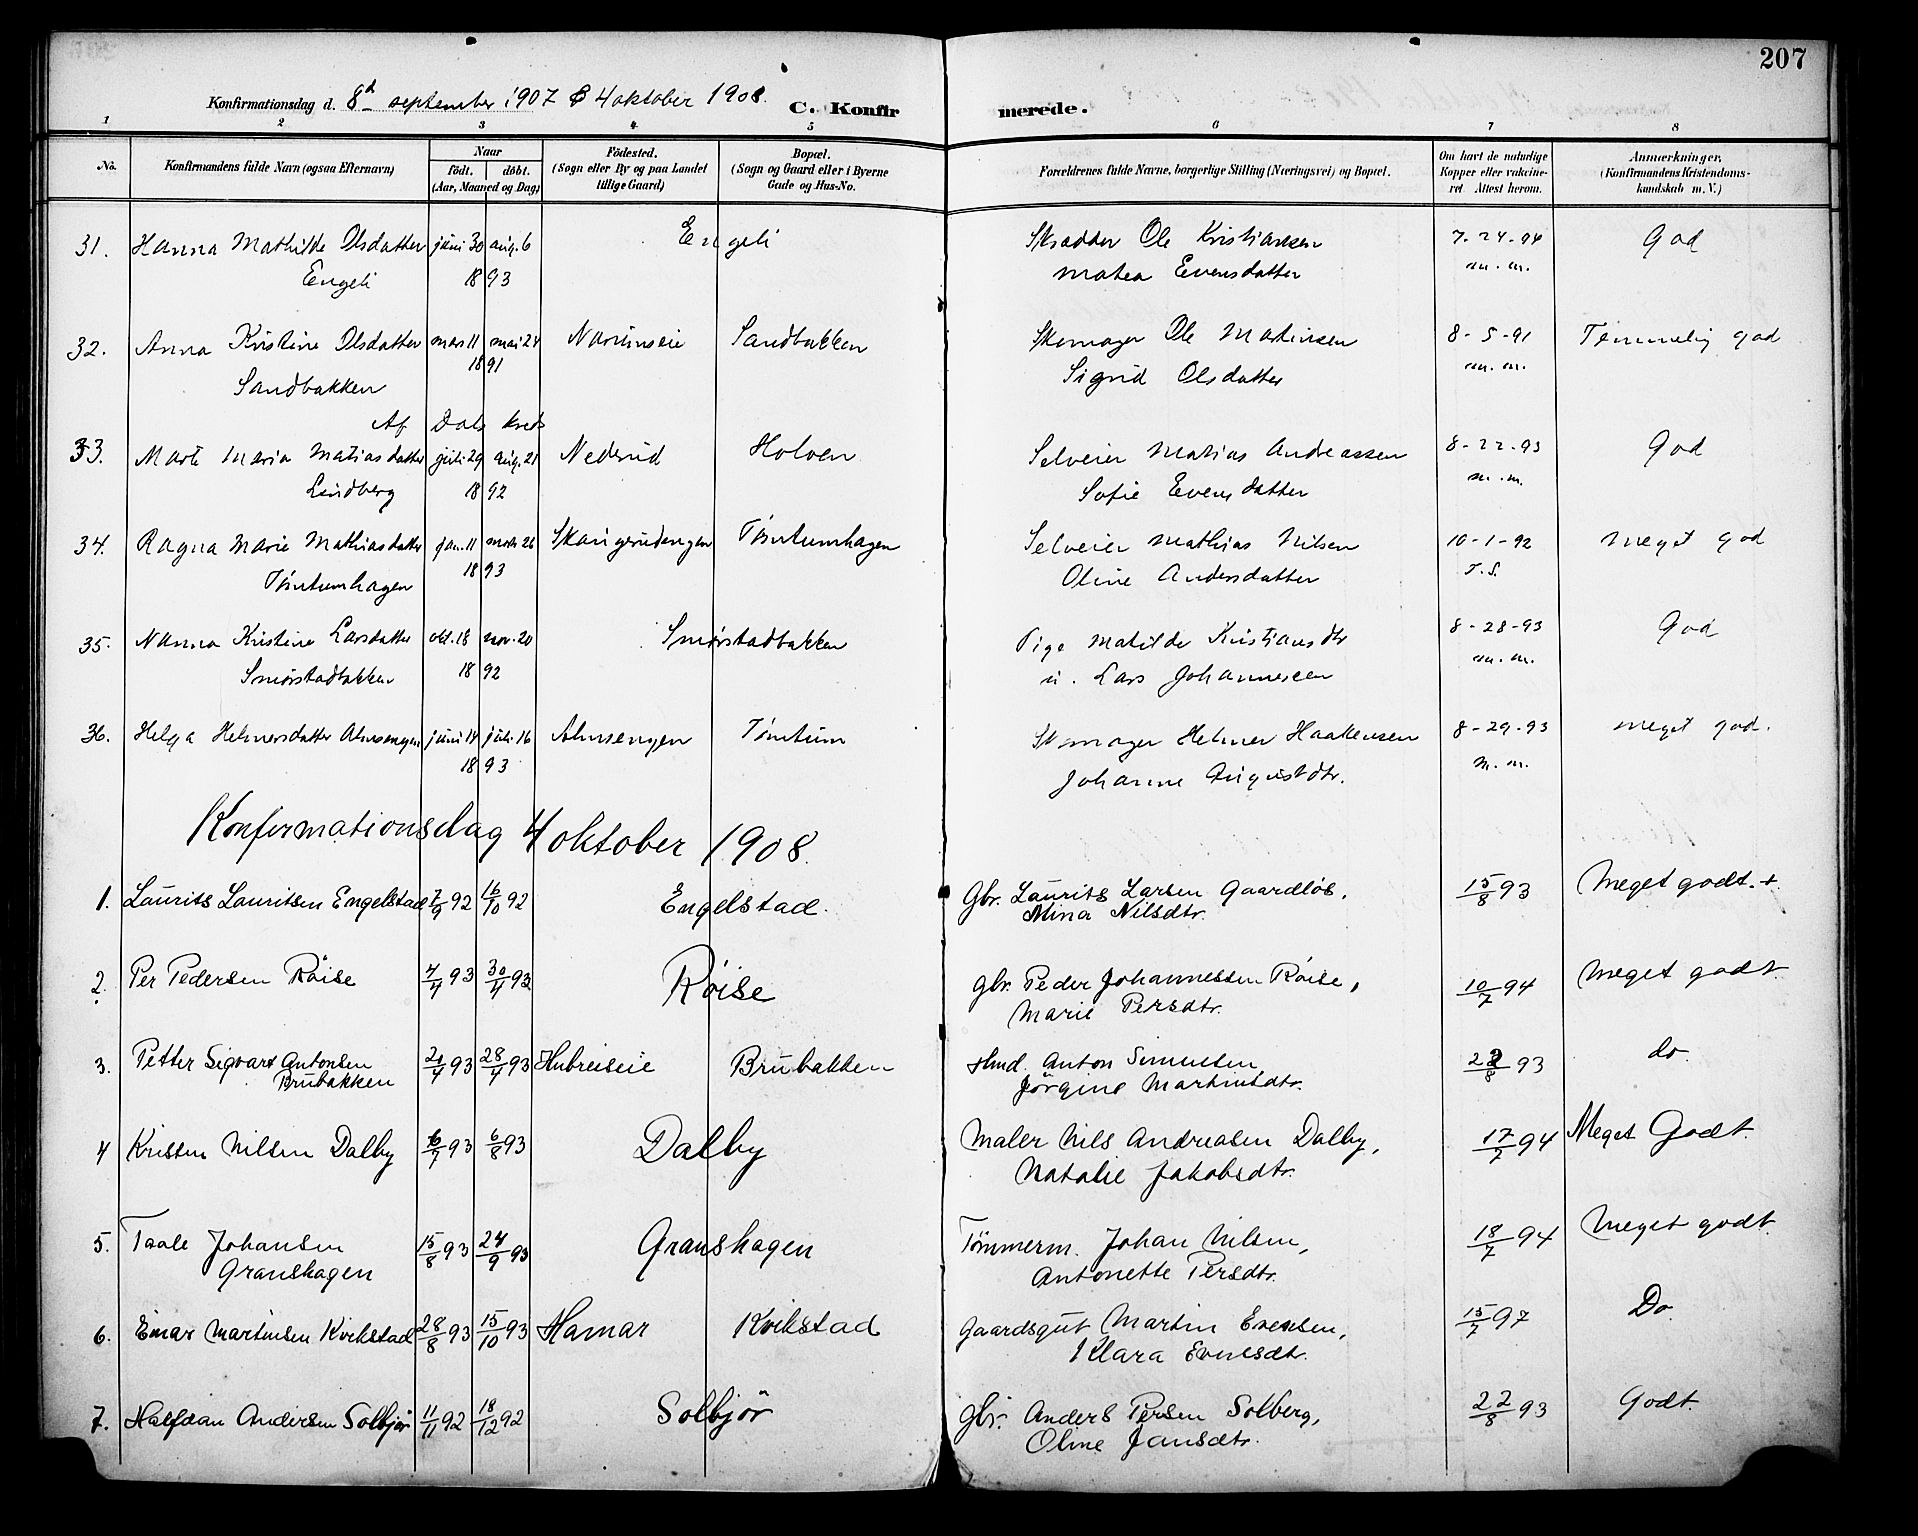 207
Konfirmationsdag d. 8d september 1907 & 4 oktober 1908. C. Konfirmerede.
1 2 3 4 5 6 7 8
No. Konfirmandens fulde Navn (ogsaa Efternavn) Naar födt. döbt. (Aar, Maaned og Dag) Födested. (Sogn eller By og paa Landet tillige Gaard) Bopæl. (Sogn og Gaard eller i Byerne Gade og Hus-No. Forældrenes fulde Navne, borgerlige Stilling (Næringsvei) og Bopæl. Om havt de naturlige Kopper eller vakcineret. Attest herom. Anmærkninger. (Konfirmandens Kristendomskundskab m. V.)
31. Hanna Mathilde Olsdatter juni 30 aug. 6 Engeli Skrædder Ole Kristiansen 7-24-94 God
Engeli 1893 Matea Evensdatter
32. Anna Kristine Olsdatter mars 11 mai 24 Sandbakken Skomager Ole Martinsen 8-5-91 Temmelig god
Sandbakken 1891 Sigrid Olsdatter
Af Dals kreds
33. Marte Maria Matiasdatter juli 29 aug. 21 Nederud Holven Selveier Matias Andreassen 8-22-93 God
Lindberg 1892 Sofie Evensdatter
34. Ragna Marie Mathiasdatter jan. 11 mars 26 Skangerudengen Töntumhagen Selveier Mathias Nilsen 10-1-92 Meget god
Töntumhagen 1893 Oline Andersdatter T.S.
35. Nanna Kristine Larsdatter okt. 18 nov. 20 Smörstadbakken Pige Matilde Kristiansdtr 8-28-93 God
Smörstadbakken 1892 u. Lars Johannesen
36. Helga Helmersdatter Almsengen juni 14 juli 16 Almsengen Töntum Skomager Helmer Haakensen 8-29-93 meget god.
1893 Johanne Augustdtr.
Konfirmationsdag 4 oktober 1908.
1. Laurits Lauritsen Engelstad 7/9 92 16/10 92 Engelstad. Gbr. Laurits Larsen Gaardlös, 15/8 93 Meget godt.+
Mina Nilsdtr.
2. Per Pedersen Röise 4/4 93 30/4 93 Röise Gbr. Peder Johannessen Röise, 10/7 94 Meget godt
Marie Persdtr.
3. Petter Sigvart Antonsen 2/4 93 28/4 93 Hubreiseie Brubakken Hmd. Anton Simensen 22/8 93 do.
Brubakken Jörgine Martinsdtr.
4 Kristen Nilsen Dalby 6/7 93 6/8 93 Dalby Maler Nils Andreasen Dalby, 17/7 94 Meget Godt.
Natalie Jakobsdtr.
5. Taale Johansen 15/8 93 24/9 93 Granshagen Tömmerm. Johan Nilsen, 18/7 94 Meget godt
Granshagen Antonette Persdtr.
6. Einar Martinsen Kvikstad 28/8 93 15/10 93 Hamar Kvikstad Gaardsgut Martin Evensen, 15/7 97 Do.
Klara Evensdtr.
7. Halfdan Andersen Solbjör 11/11 92 18/12 92 Solbjör Gbr. Anders Persen Solberg, 22/8 93 Godt.
Oline Jansdtr.